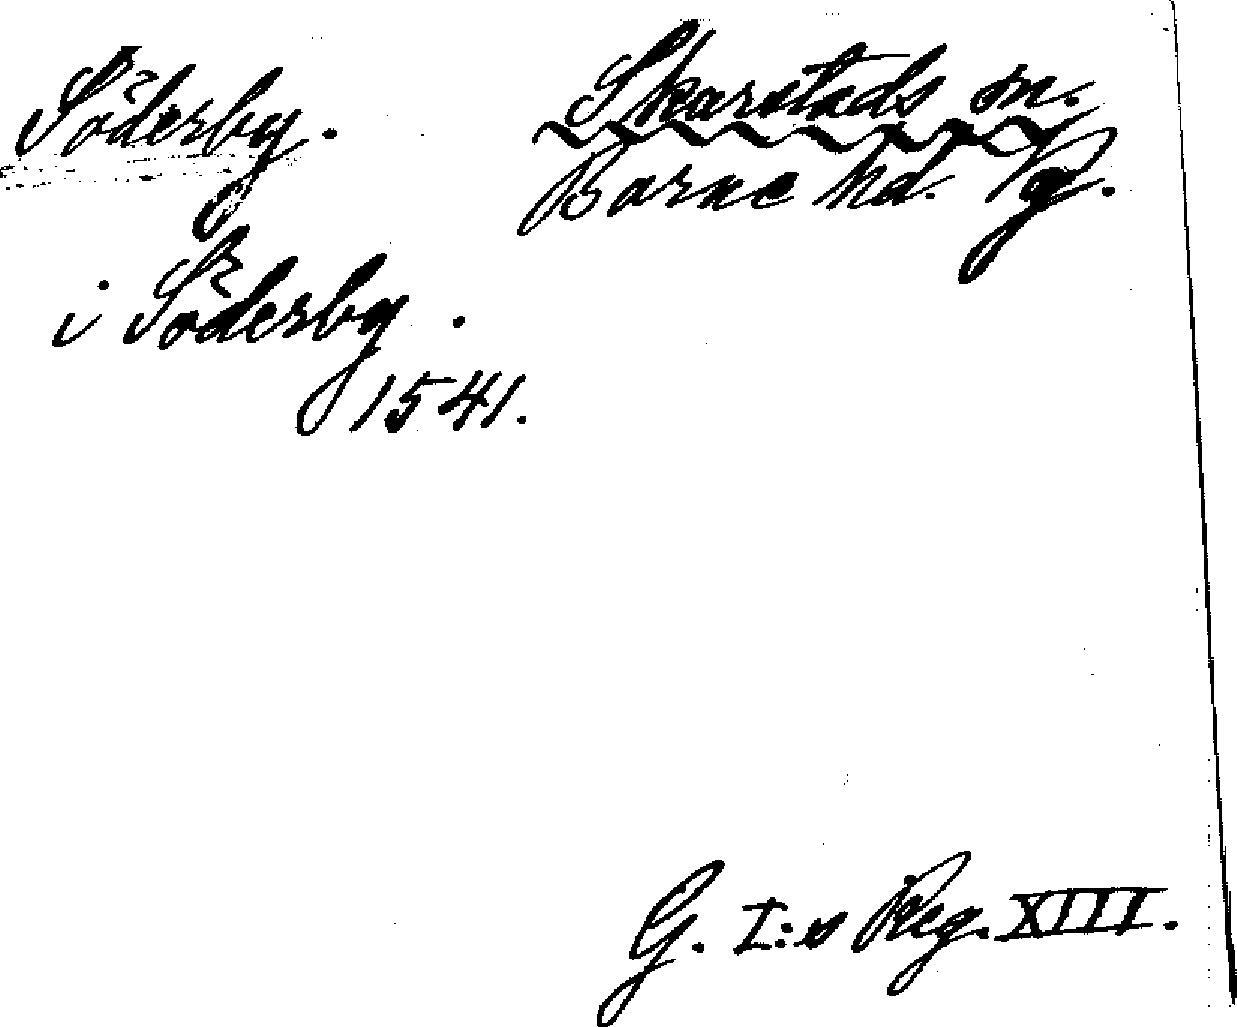 Söderby.
Skarstads sn.
Barne hd. Vg.
i Söderby.
1541.
G. I:s Reg. XIII.